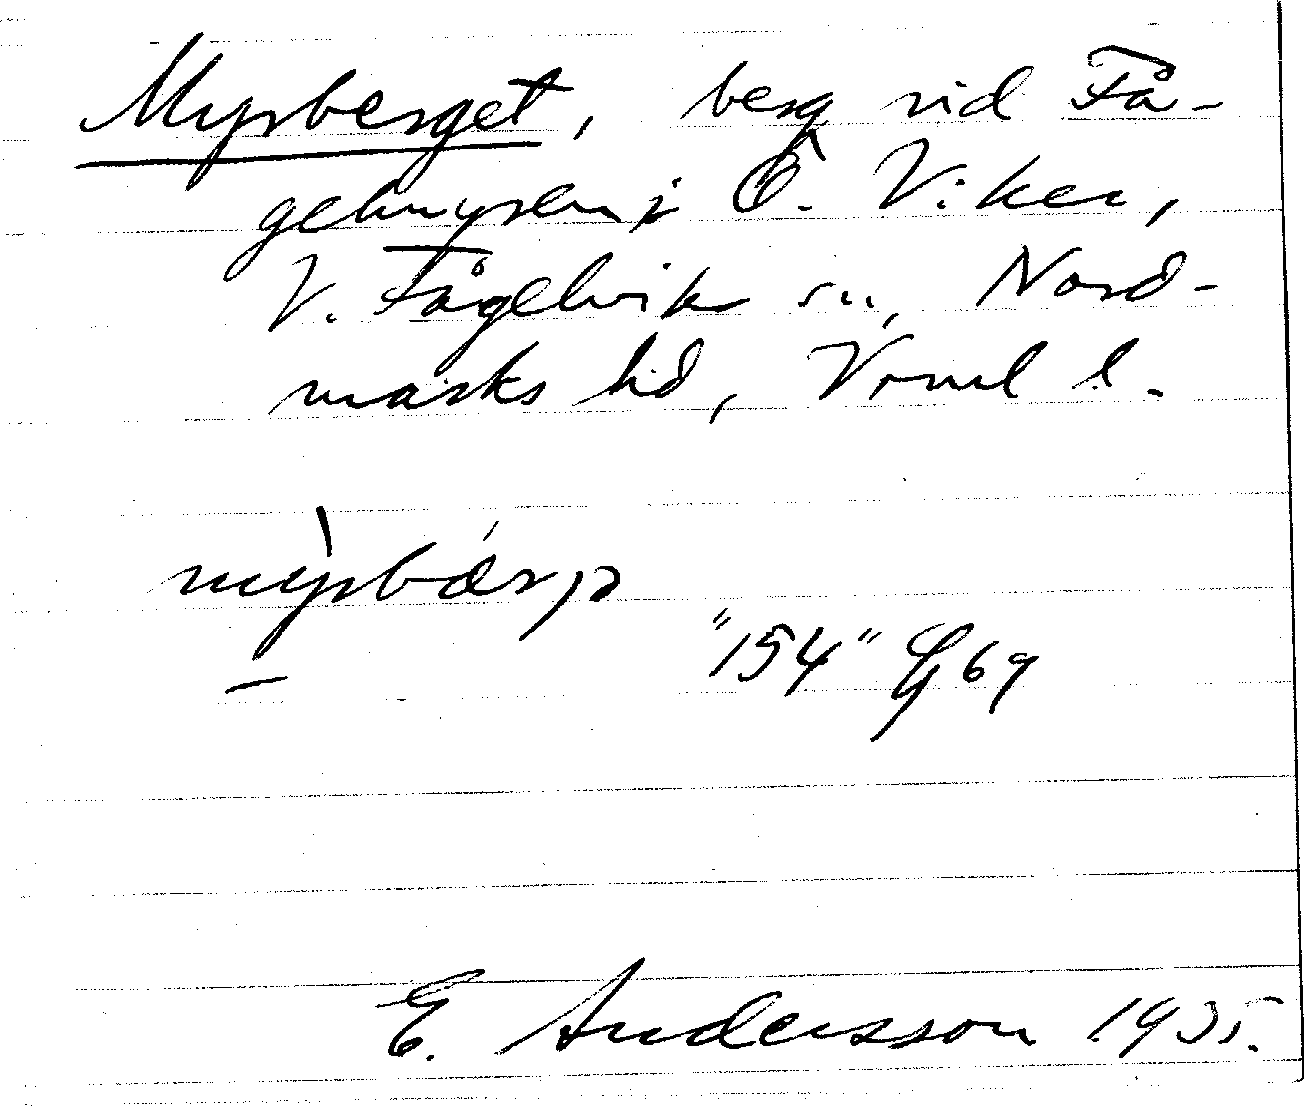 Myrberget, berg vid Få-
gelmyren i Ö. Viker,
V. Fågelvik sn, Nord-
marks hd, Vrml l.
"154" 69
E. Andersson 1935.